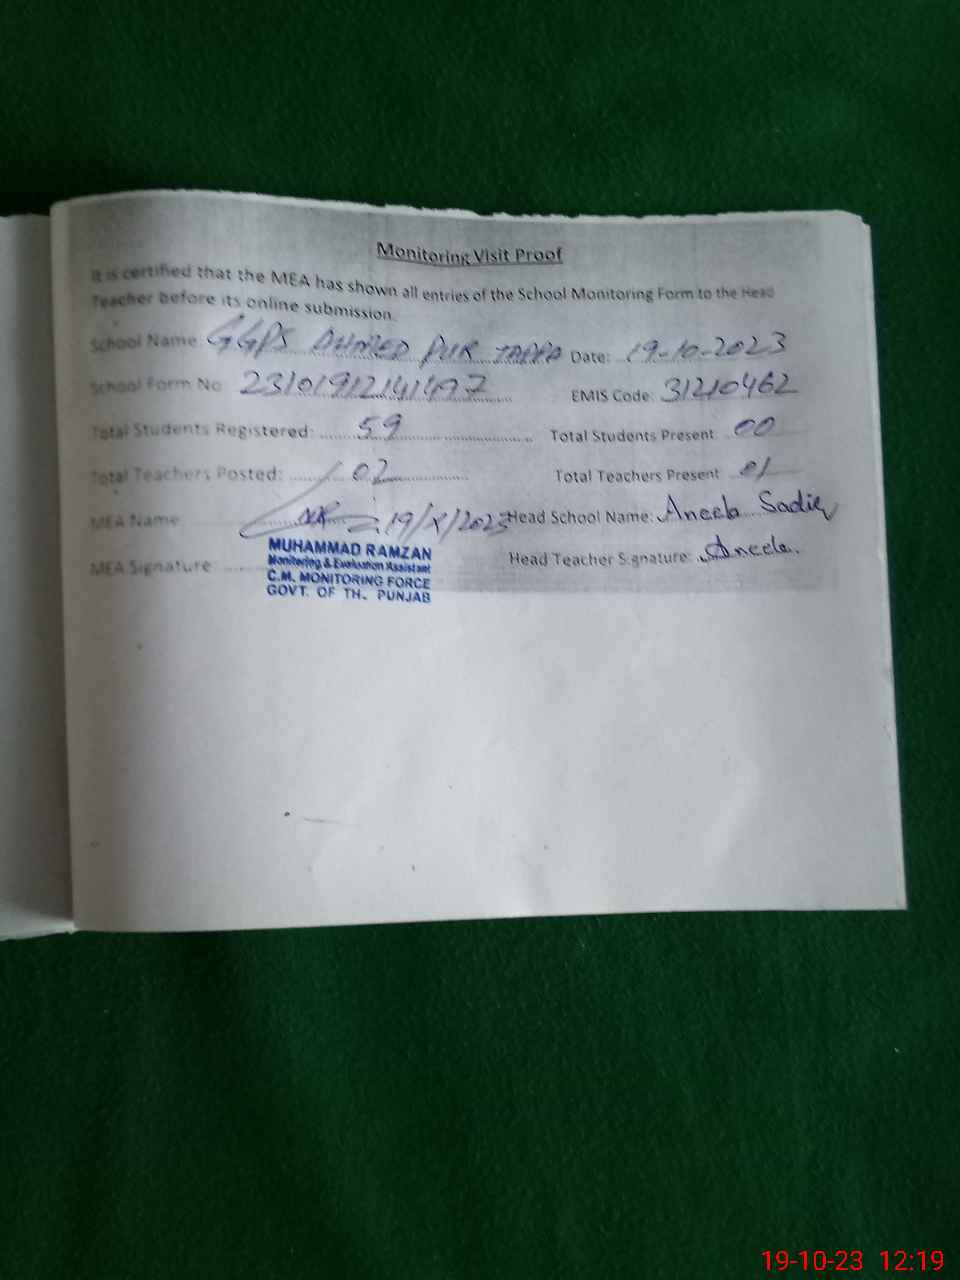 Monitoring Visit Proof
It is certified that the MEA has shown all entries of the School Monitoring Form to the Head
Teacher before its online submission.
School Name: GGPS AHMED PUR TAPPA Date: 19-10-2023
School Form No: 23101912141497 EMIS Code: 31210462
Total Students Registered: 59 Total Students Present 00
Total Teachers Posted: 02 Total Teachers Present 01
MEA Name 19/X/2023 Head School Name: Aneela Sadiq
MEA Signature Head Teacher Signature: Aneela.
MUHAMMAD RAMZAN
Monitoring & Evaluation Assistant
C.M. MONITORING FORCE
GOVT. OF THE PUNJAB
19-10-23 12:19